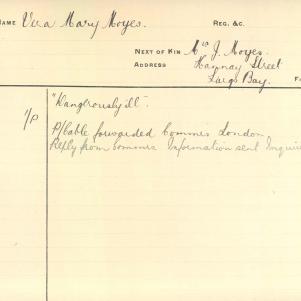 NAME Vera Mary Moyes. REG. &C.
NEXT OF KIN Mrs J. Moyes.
ADDRESS Hannay Street
Largs Bay. F
"Dangerously ill".
1/P P/Cable forwarded Commis London
Reply from Commis Information sent Inquiri